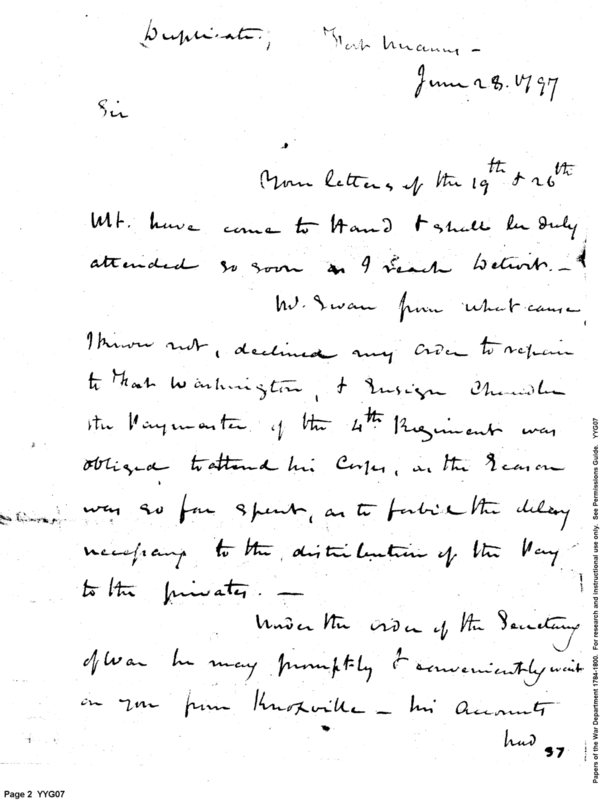 Duplicate, Fort Wayne –
June 28. 1797
Sir
Your letters of the 19th & 26th
Ult. have come to Hand & shall be duly
attended so soon as I reach Detroit. –
Mr. Swan from what cause
I know not, declined my order to repair
to Fort Washington, & Ensign Chandler
the Paymaster of the 4th Regiment was
obliged to attend his Corps, as the Season
was so far spent, as to forbid the delay
necessary to the distribution of the Pay
to the privates. –
Under the order of the Secretary
of War he may promptly & conveniently wait
on you from Knoxville – his Accounts
had
37
Page 2 YYG07
Papers of the War Department 1784-1800. For research and instructional use only. See Permissions Guide. YYG07